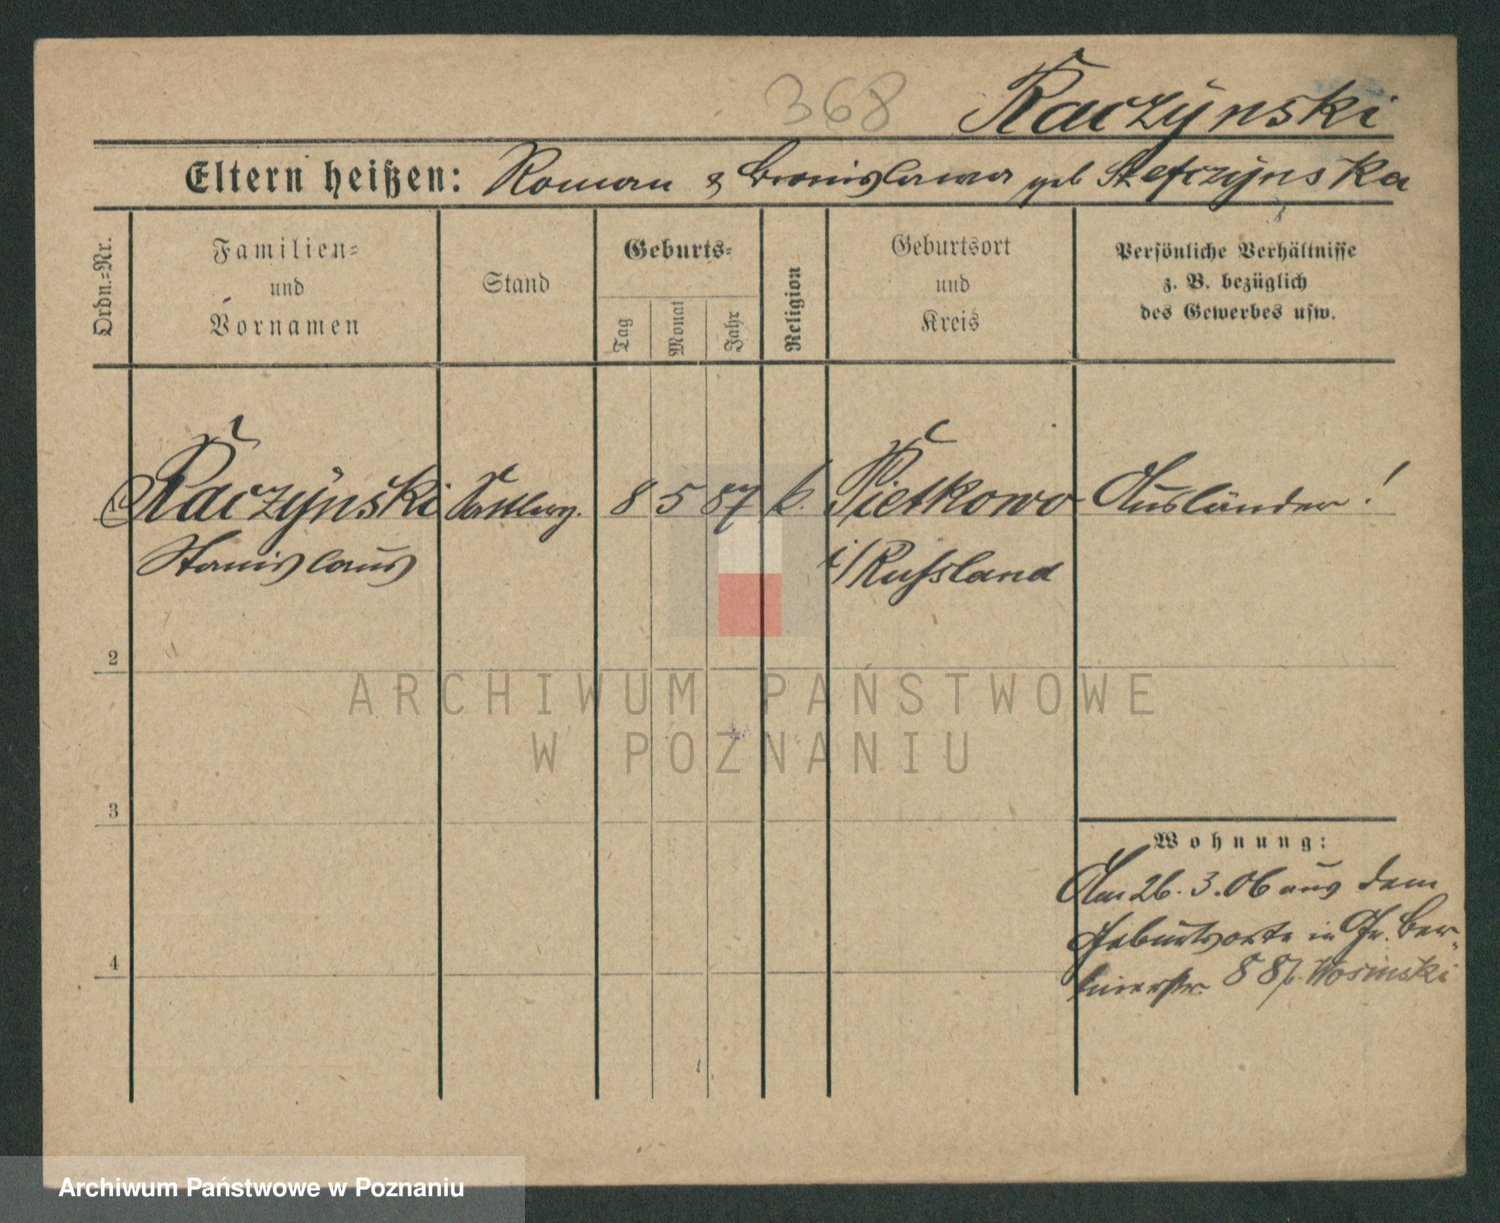 368
Raczÿnski
Eltern heißen: Roman & Bronislawa geb Stefczÿnska
Ordn.-Nr.
Familien-
und
Vornamen
Stand
Geburts-
Tag
Monat
Jahr
Religion
Geburtsort
und
Kreis
Persönliche Verhältnisse
z. B. bezüglich
des Gewerbes usw.
Raczÿnski
Stanislaus
8 5 87 k.
Pietkowo
i/Russland
Ausländer!
2
3
4
Wohnung:
Am 26.3.06 aus dem
Geburtsorte in Gr. Ber-
linerstr. 88 b. Wosinski
ARCHIWUM PAŃSTWOWE
W POZNANIU
Archiwum Państwowe w Poznaniu